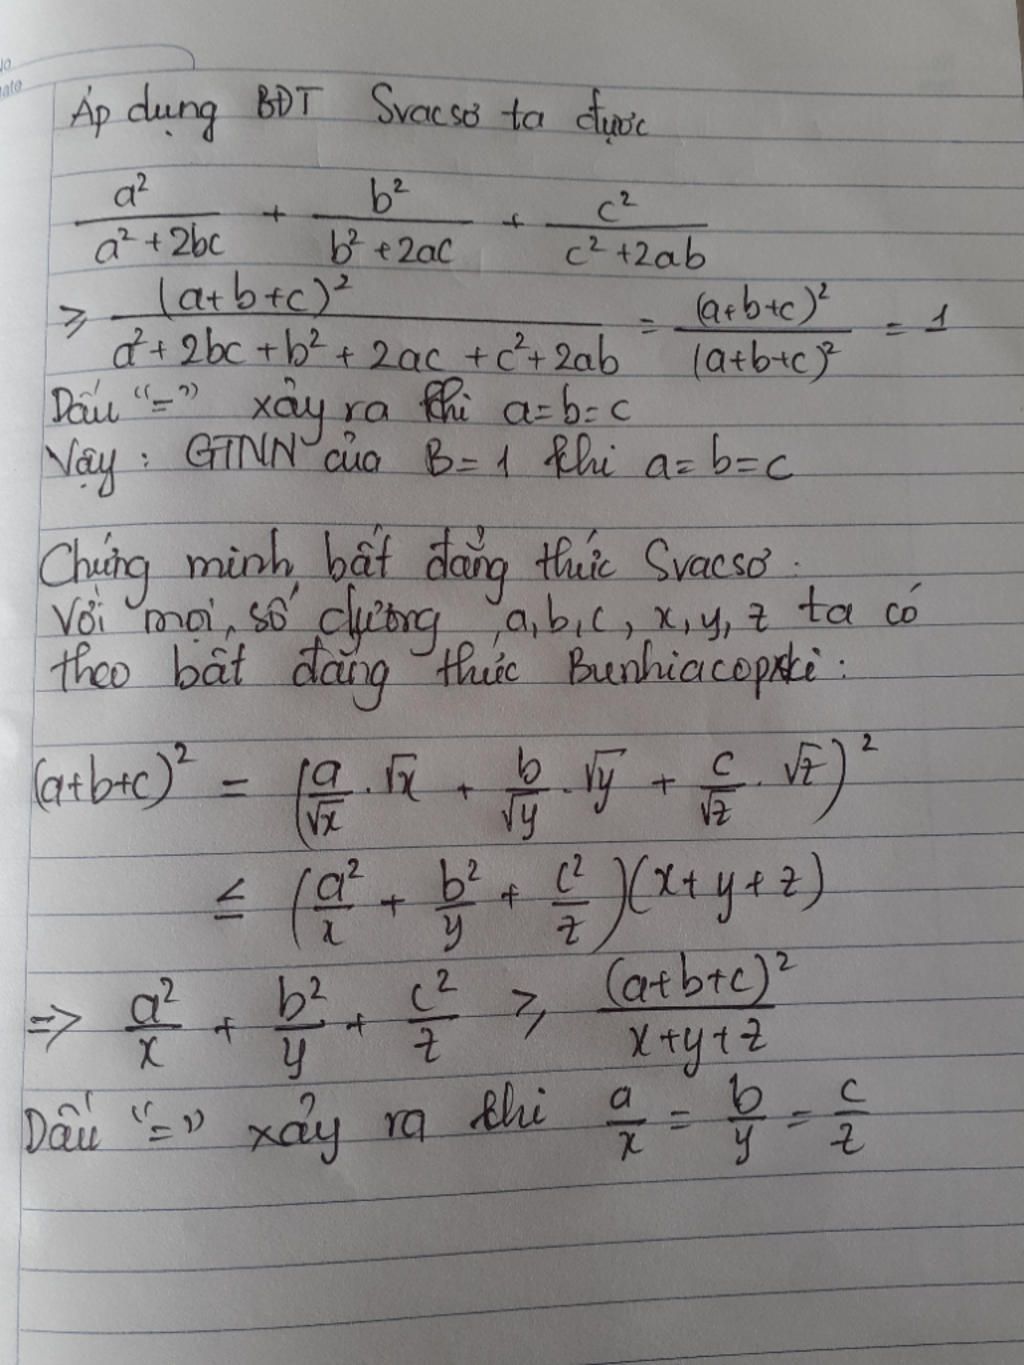 Áp dụng BĐT Svacsơ ta được
a²/(a²+2bc) + b²/(b²+2ac) + c²/(c²+2ab)
≥ (a+b+c)²/(a²+2bc+b²+2ac+c²+2ab) = (a+b+c)²/(a+b+c)² = 1
Dấu "=" xảy ra khi a=b=c
Vậy: GTNN của B=1 khi a=b=c
Chứng minh bất đẳng thức Svacsơ.
Với mọi số dương a,b,c, x,y,z ta có
theo bất đẳng thức Bunhiacopxki:
(a+b+c)² = (a/√x · √x + b/√y · √y + c/√z · √z)²
≤ (a²/x + b²/y + c²/z)(x+y+z)
=> a²/x + b²/y + c²/z ≥ (a+b+c)²/(x+y+z)
Dấu "=" xảy ra khi a/x = b/y = c/z